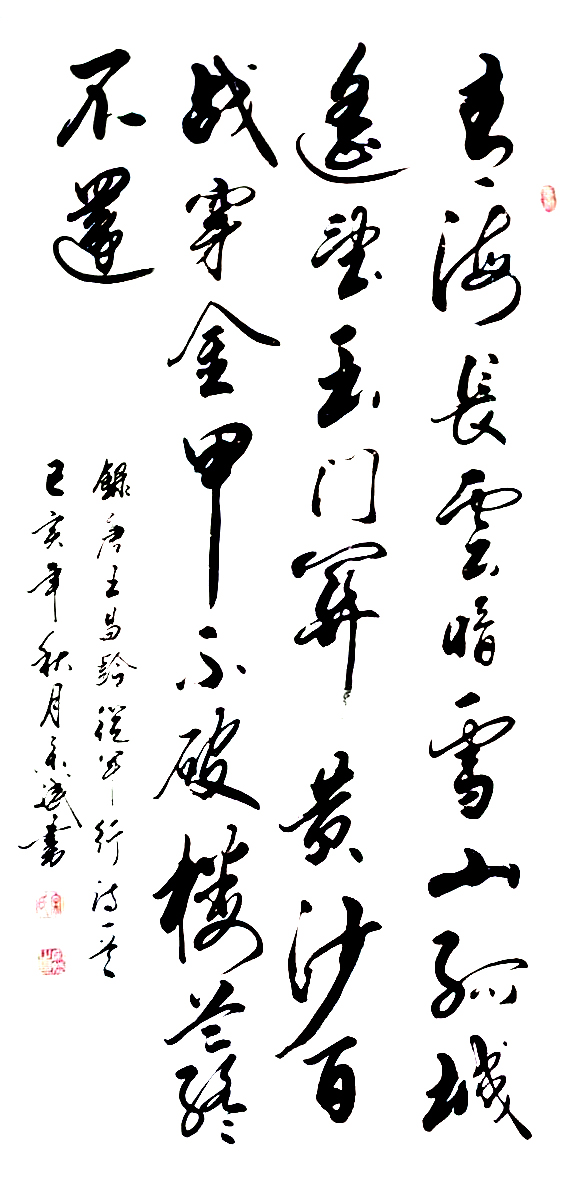 青海長雲暗雪山孤城
遥望玉门關黄沙百
战穿金甲不破楼兰终
不還
錄唐王昌龄從军行诗一首
己亥年秋月斌書